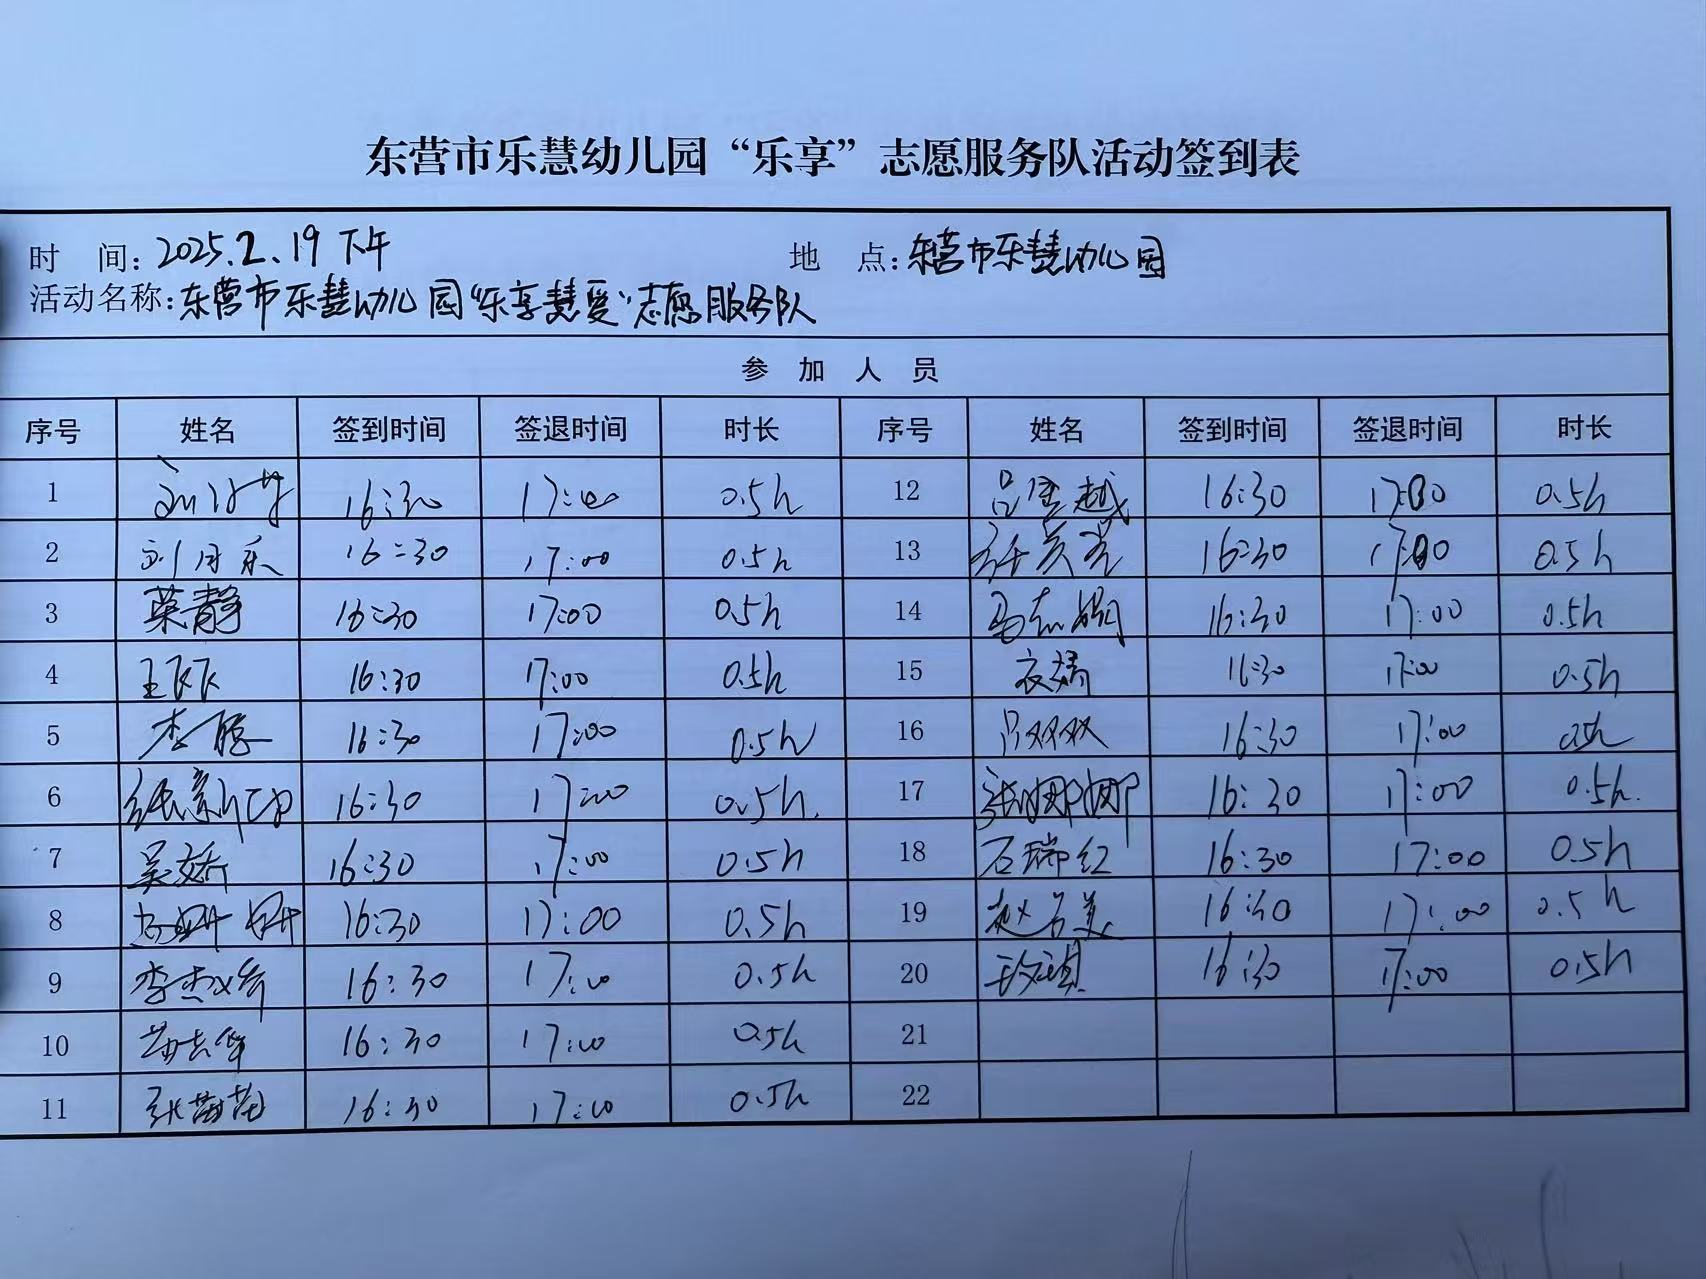 东营市乐慧幼儿园“乐享”志愿服务队活动签到表
时 间: 2025.2.19下午 地 点: 东营市乐慧幼儿园
活动名称: 东营市乐慧幼儿园“乐享慧爱”志愿服务队
参 加 人 员
序号 姓名 签到时间 签退时间 时长 序号 姓名 签到时间 签退时间 时长
1 16:30 17:00 0.5h 12 16:30 17:00 0.5h
2 16:30 17:00 0.5h 13 16:30 17:00 0.5h
3 荣静 16:30 17:00 0.5h 14 16:30 17:00 0.5h
4 16:30 17:00 0.5h 15 衣婧 16:30 17:00 0.5h
5 16:30 17:00 0.5h 16 吕双双 16:30 17:00 0.5h
6 16:30 17:00 0.5h. 17 张娜娜 16:30 17:00 0.5h.
7 吴娇 16:30 17:00 0.5h 18 石瑞红 16:30 17:00 0.5h
8 16:30 17:00 0.5h 19 16:30 17:00 0.5h
9 16:30 17:00 0.5h 20 16:30 17:00 0.5h
10 16:30 17:00 0.5h 21
11 张苗苗 16:30 17:00 0.5h 22